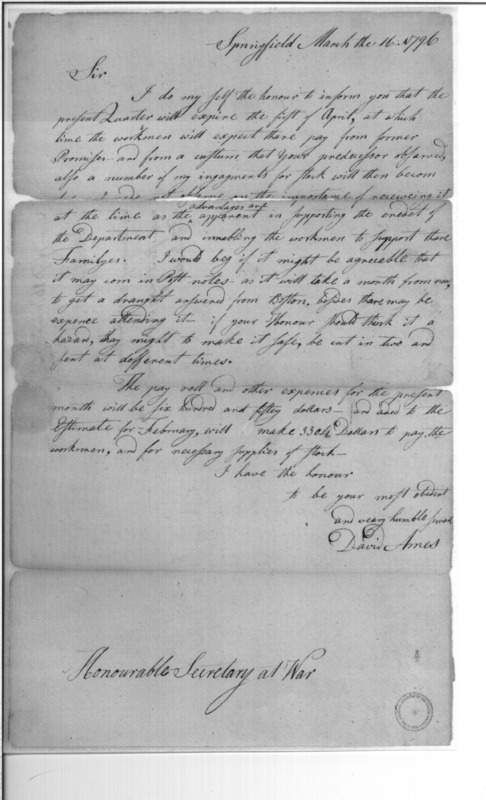 Springfield March the 16. 1796
Sir
I do my self the honour to inform you that the
present Quarter will expire the first of April, at which
time the workmen will expect thare pay from former
Promises and from a custum that your predecessor observed,
also a number of my ingagments for stock will then becom
on the importance of receiveing it
at the time as the advantages are apparent in supporting the credet of
the Department and inneabling the workmen to support thare
Familyes. I would beg if it might be agreeable that
it may com in Post notes as it will take a month from now,
to get a draught answered from Boston, besides thare may be
expence attending it if your Honour should think it a
hazard, thay might to make it safe, be cut in two and
sent at different times.
The pay roll and other expenses for the present
month will be six hundred and fifty dollars — and aded to the
Estimate for February, will make Dollars to pay the
workmen, and for necessary supplies of stock —
I have the honour
to be your most obedient
and veary humble servt
David Ames
Honourable Secretary at War